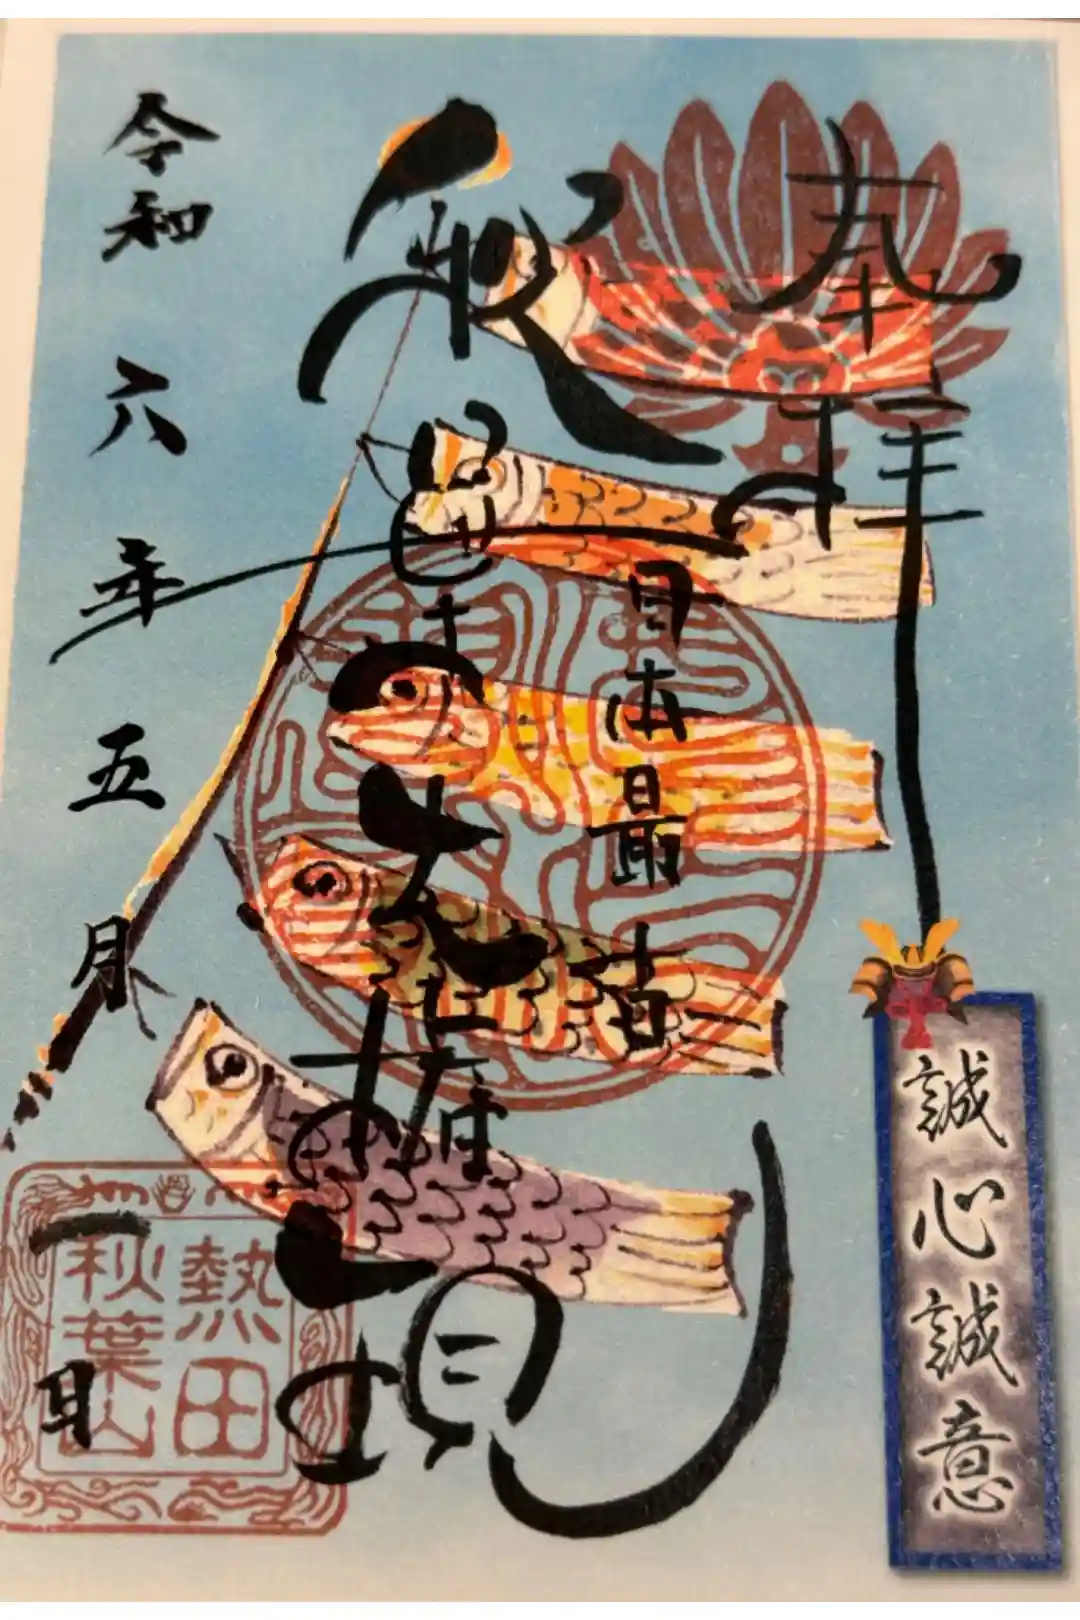 奉拝
日本最古
秋葉大権現
令和六年五月一日
誠心誠意
熱田
秋葉山